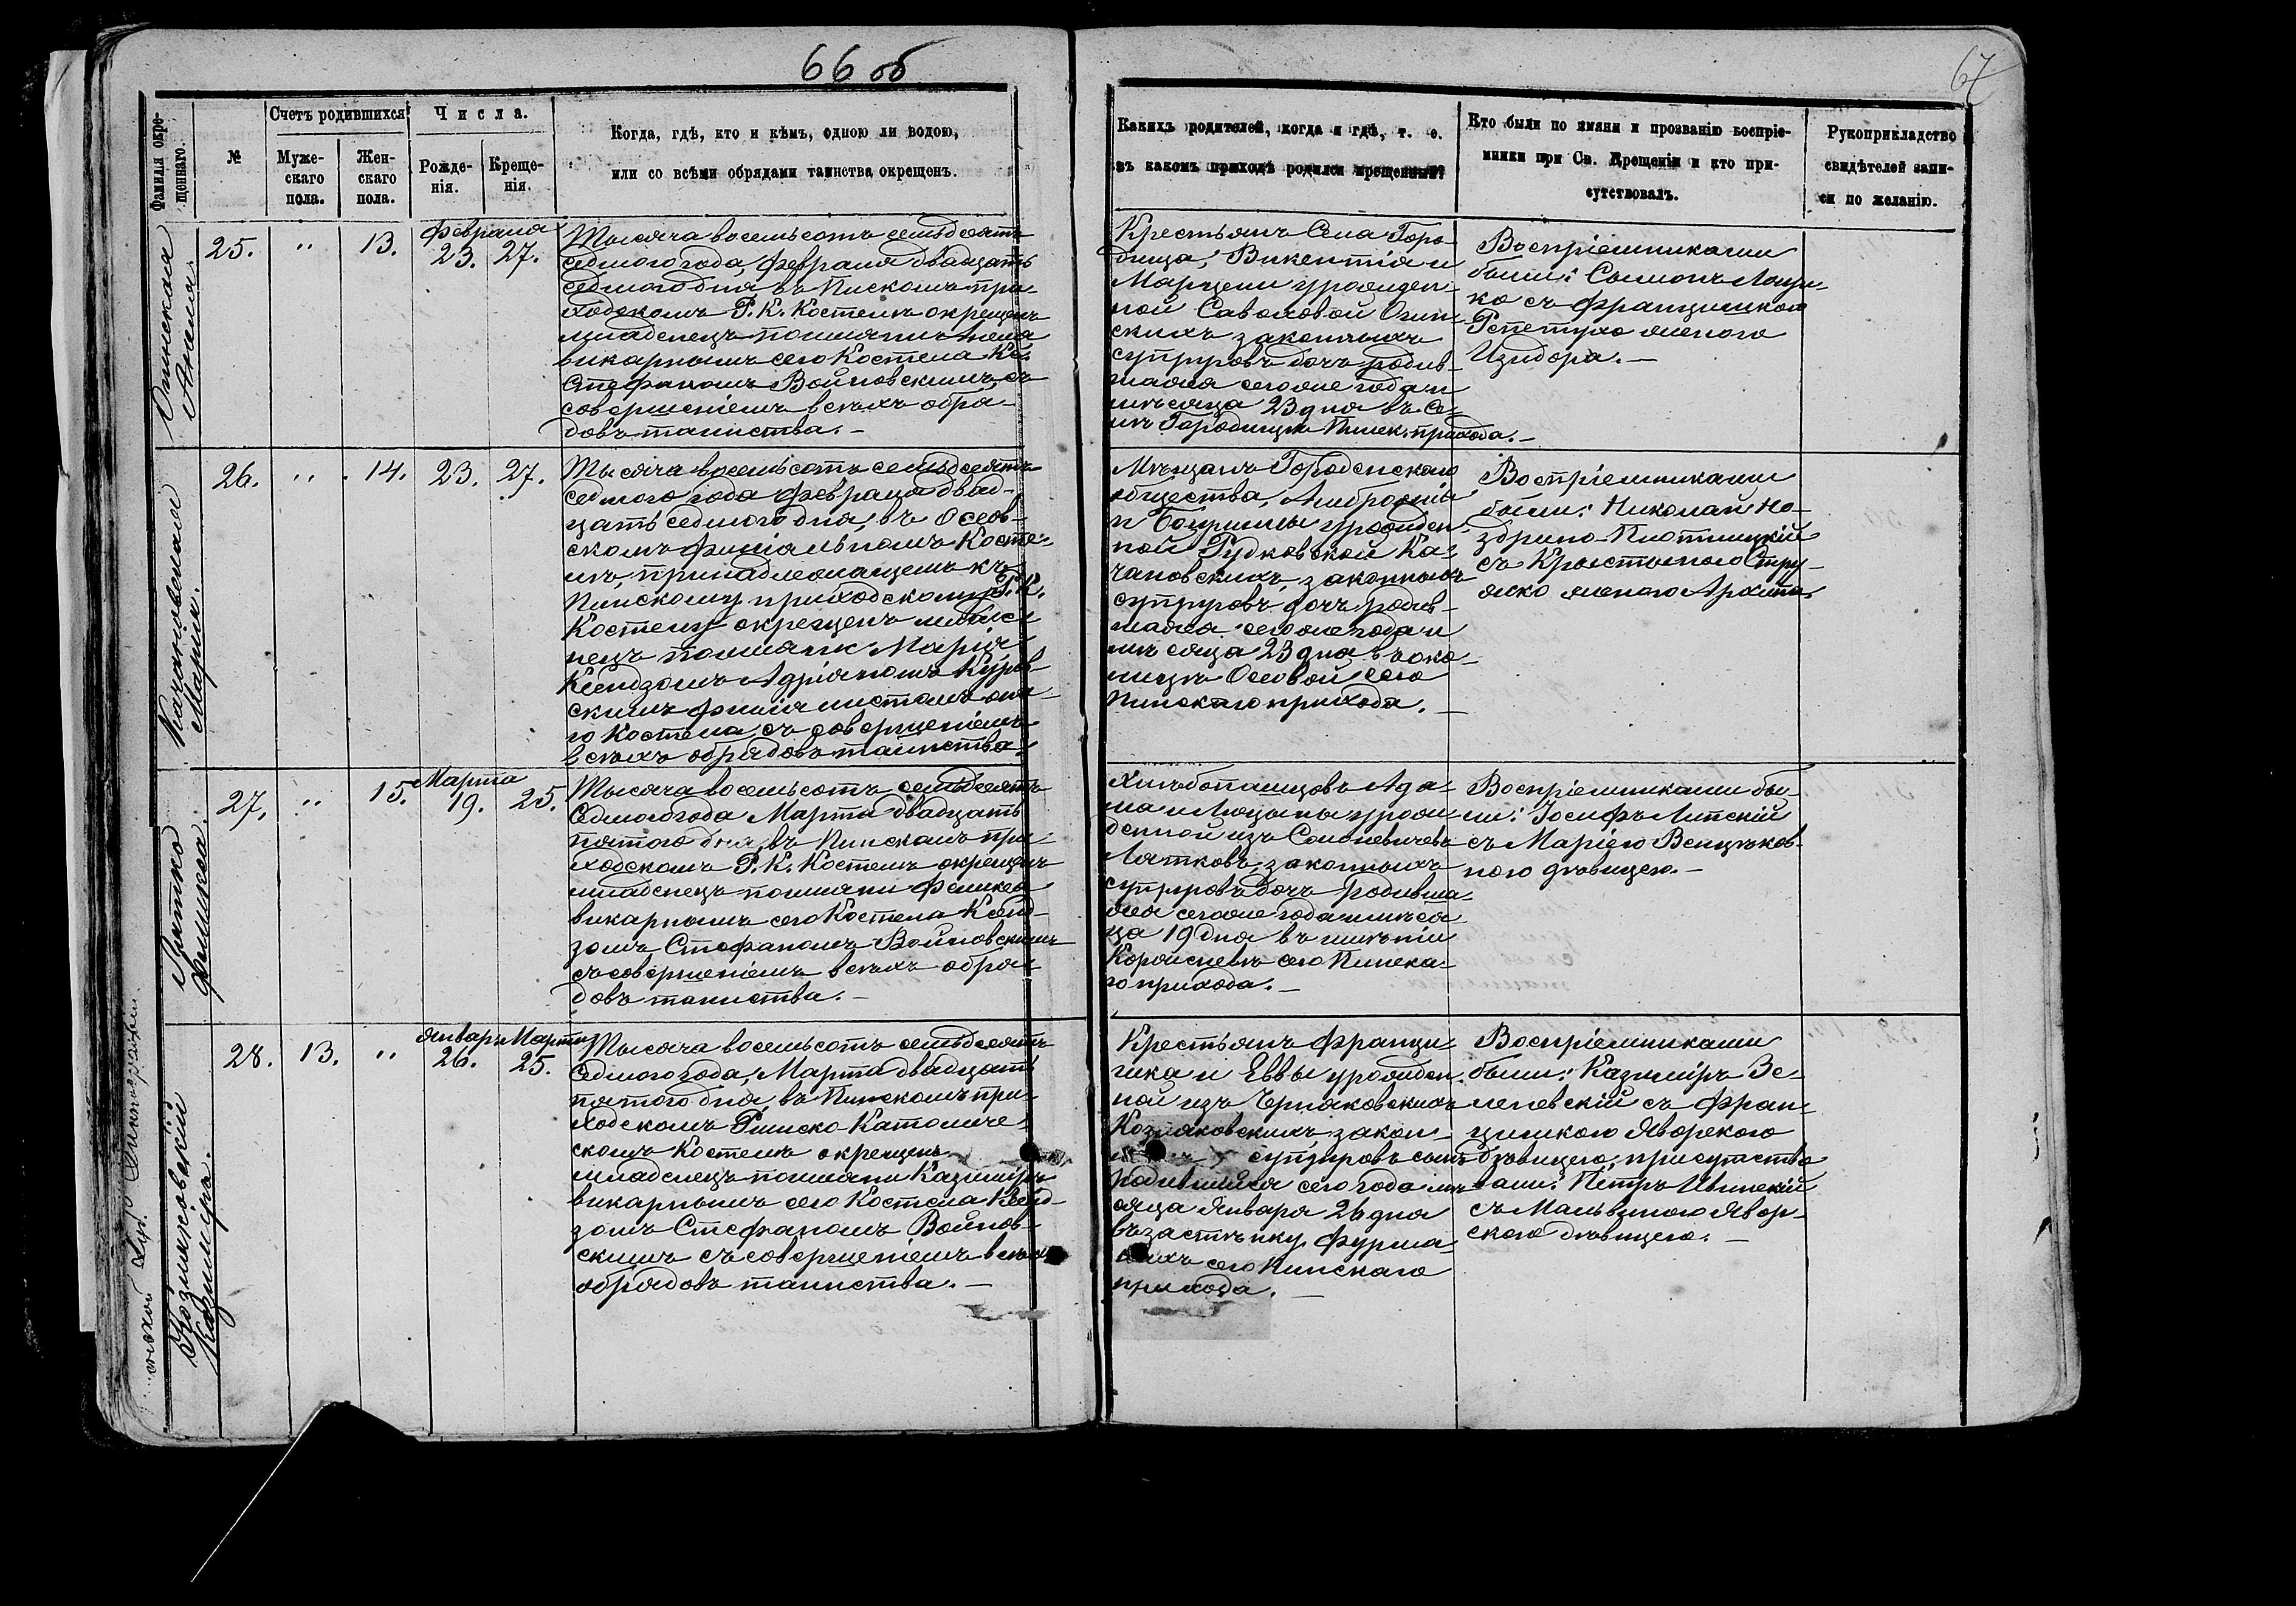 66 об
67
Фамилія окре-
щеннаго.
№
Счетъ родившихся
Муже-
скаго
пола.
Жен-
скаго
пола.
Числа.
Рожде-
нія.
Креще-
нія.
Когда, гдѣ, кто и кѣмъ, одною ли водою,
или со всѣми обрядами таинства окрещенъ.
Какихъ родителей, когда и гдѣ, т. е.
въ какомъ приходѣ родился крещенный?
Кто были по имяни и прозванію воспріе-
мники при Св. Крещеніи и кто при-
сутствовалъ.
Рукоприкладство
свидѣтелей запи-
си по желанію.
25.
"
13.
Февраля
23. 27.
Тысяча восемьсотъ семьдесятъ
седмого года, февраля двадцать
седмого дня въ Пинскомъ при-
ходскомъ Р. К. Костелѣ окрещенъ
младенецъ
викарнымъ сего Костела Кс.
Стефаномъ Войновскимъ, съ
совершеніемъ всѣхъ обря-
довъ таинства. —
Крестьянъ Села Горо-
дища, Викентія и
урожден-
ной
скихъ законныхъ
супруговъ дочь родив-
шаяся сегоже года и
мѣсяца 23 дня въ Се-
лѣ Городищѣ Пинск. прихода. —
Воспріемниками
были:
съ Францишкою
женою
Изидора. —
Качановская
Марія.
26.
"
14.
23. 27.
Тысяча восемьсотъ семьдесятъ
седмого года февраля двад-
цать седмого дня, въ Осов-
скомъ филіальномъ Косте-
лѣ, принадлежащемъ къ
Пинскому приходскому Р. К.
Костелу окрещенъ младе-
нецъ поимяни Марія,
Ксендзомъ Адріаномъ
скимъ филіалистомъ она-
го Костела, съ совершеніемъ
всѣхъ обрядовъ таинства.
Мѣщанъ Городенскаго
общества, Амброзія
и урожден-
ной Гудковской Ка-
чановскихъ, законныхъ
супруговъ дочь родив-
шаяся сегоже года и
мѣсяца 23 дня въ око-
лицѣ Осовой сего
Пинскаго прихода. —
Воспріемниками
были: Николай Но-
здрино-Плотницкій
съ Крыстыною Стру-
женою
Лятко
Феликса.
27.
"
15.
Марта
19. 25.
Тысяча восемьсотъ семьдесятъ
Седмого года Марта двадцать
пятого дня, въ Пинскомъ при-
ходскомъ Р. К. Костелѣ окрещенъ
младенецъ поимяни Феликса
викарнымъ сего Костела Ксенд-
зомъ Стефаномъ Войновскимъ
съ совершеніемъ всѣхъ обря-
довъ таинства. —
Хлѣбопашцовъ Ада-
ма и Люцыны урож-
денной изъ
Лятковъ, законныхъ
супруговъ дочь родивша-
яся сегоже года и мѣся-
ца 19 дня въ имѣніи
сего Пинска-
го прихода. —
Воспріемниками бы-
ли: Іосифъ Липскій
съ Маріею Венцков-
ною дѣвицею. —
Козляковскій
Казимиръ.
28.
13.
"
Январь Марта
26. 25.
Тысяча восемьсотъ семьдесятъ
Седмого года, Марта двадцать
пятого дня въ Пинскомъ при-
ходскомъ Римско Католиче-
скомъ Костелѣ окрещенъ
младенецъ поимяни Казимиръ
викарнымъ сего Костела Ксенд-
зомъ Стефаномъ Войнов-
скимъ съ совершеніемъ всѣхъ
обрядовъ таинства. —
Крестьянъ Франци-
шка и Еввы урожден-
ной изъ Черняковскихъ
Козляковскихъ, закон-
супруговъ сынъ
родившійся сего года мѣ-
сяца Января 26 дня
въ застѣнку Фурма-
сего Пинскаго
прихода. —
Воспріемниками
были: Казиміръ Зе-
леневскій съ Фран-
цишкою Яворскою
дѣвицею, присутство-
вали: Петръ
съ Мальвиною Явор-
скою дѣвицею. —